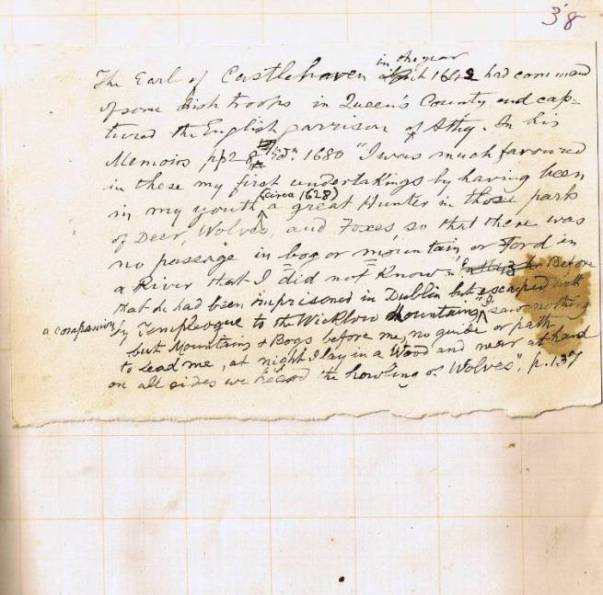 38
in the year
The Earl of Castlehaven 1642 had command
of some Irish troops in Queen's County and cap-
tured the English garrison of Athy. In his
Memoirs pp 28 Edn. 1680 "I was much favoured
in these my first undertakings by having been
(circa 1628)
in my youth a great Hunter in those parts
of Deer, Wolves, and Foxes so that there was
no passage in bog or mountain or ford in
a River that I did not Know." Before
that he had been imprisoned in Dublin but escaped with
a companion by Templeogue to the Wicklow Mountains "I saw nothing
but Mountains & Bogs before me, no guide or path
to lead me, at night I lay in a Wood and near at hand
on all sides we heard the howling of Wolves". p. 137